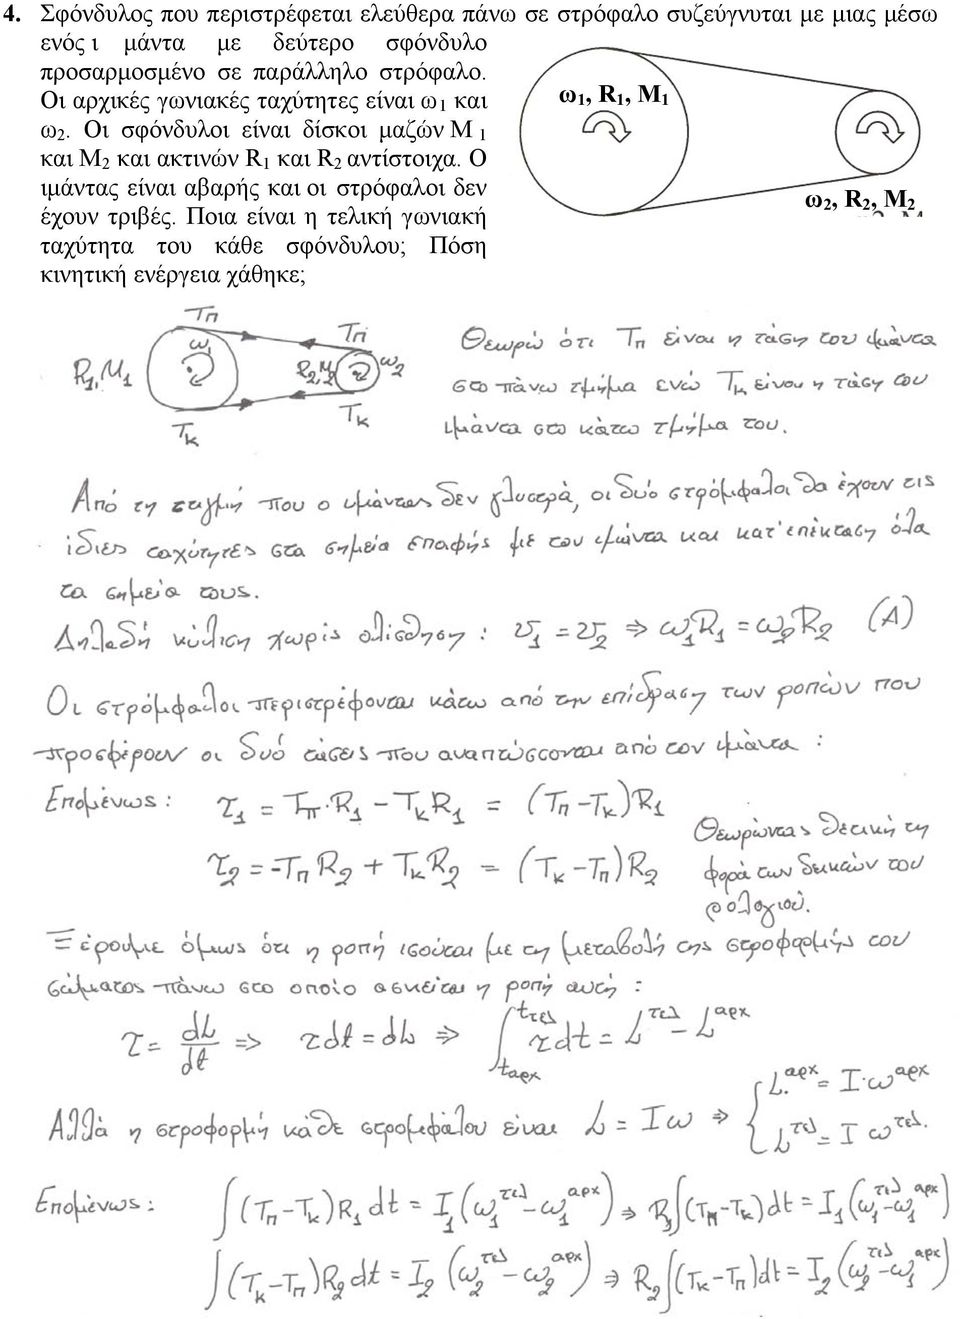 4. Σφόνδυλος που περιστρέφεται ελεύθερα πάνω σε στρόφαλο συζεύγνυται με μιας μέσω
ενός ι μάντα με δεύτερο σφόνδυλο
προσαρμοσμένο σε παράλληλο στρόφαλο.
Οι αρχικές γωνιακές ταχύτητες είναι ω1 και
ω2. Οι σφόνδυλοι είναι δίσκοι μαζών M 1
και M2 και ακτινών R1 και R2 αντίστοιχα. Ο
ιμάντας είναι αβαρής και οι στρόφαλοι δεν
έχουν τριβές. Ποια είναι η τελική γωνιακή
ταχύτητα του κάθε σφόνδυλου; Πόση
κινητική ενέργεια χάθηκε;
ω1, R1, M1
ω2, R2, M2
Tπ
Tπ
R1,M1
ω1
R2,M2
ω2
Tκ
Tκ
Θεωρώ ότι Tπ είναι η τάση του ιμάντα
στο πάνω τμήμα ενώ Tκ είναι η τάση του
ιμάντα στο κάτω τμήμα του.
Από τη στιγμή που ο ιμάντας δεν γλυστρά, οι δυό στρόμφαλοι θα έχουν τις
ίδιες ταχύτητες στα σημεία επαφής με τον ιμάντα και κατ' επέκταση όλα
τα σημεία τους.
Δηλαδή κύλιση χωρίς ολίσθηση : υ1 = υ2 ⇒ ω1R1 = ω2R2 (A)
Οι στρόμφαλοι περιστρέφονται κάτω από την επίδραση των ροπών που
προσφέρουν οι δυό τάσεις που αναπτύσσονται από τον ιμάντα :
Επομένως : τ1 = Tπ·R1 − TκR1 = (Tπ − Tκ)R1
τ2 = −TπR2 + TκR2 = (Tκ − Tπ)R2
Θεωρώντας θετική τη
φορά των δεικτών του
ρολογιού.
Ξέρουμε όμως ότι η ροπή ισούται με τη μεταβολή της στροφορμής του
σώματος πάνω στο οποίο ασκείται η ροπή αυτή :
τ = dL/dt ⇒ τdt = dL ⇒ ∫_{tαρχ}^{tτελ} τdt = L^τελ − L^αρχ
Αλλά η στροφορμή κάθε στρομφάλου είναι L = Iω ⇒ { L^αρχ = I·ω^αρχ
L^τελ = I ω^τελ.
Επομένως : ∫(Tπ−Tκ)R1dt = I1(ω1^τελ − ω1^αρχ) ⇒ R1∫(Tπ−Tκ)dt = I1(ω1^τελ − ω1^αρχ)
∫(Tκ−Tπ)R2dt = I2(ω2^τελ − ω2^αρχ) ⇒ R2∫(Tκ−Tπ)dt = I2(ω2^τελ − ω2^αρχ)